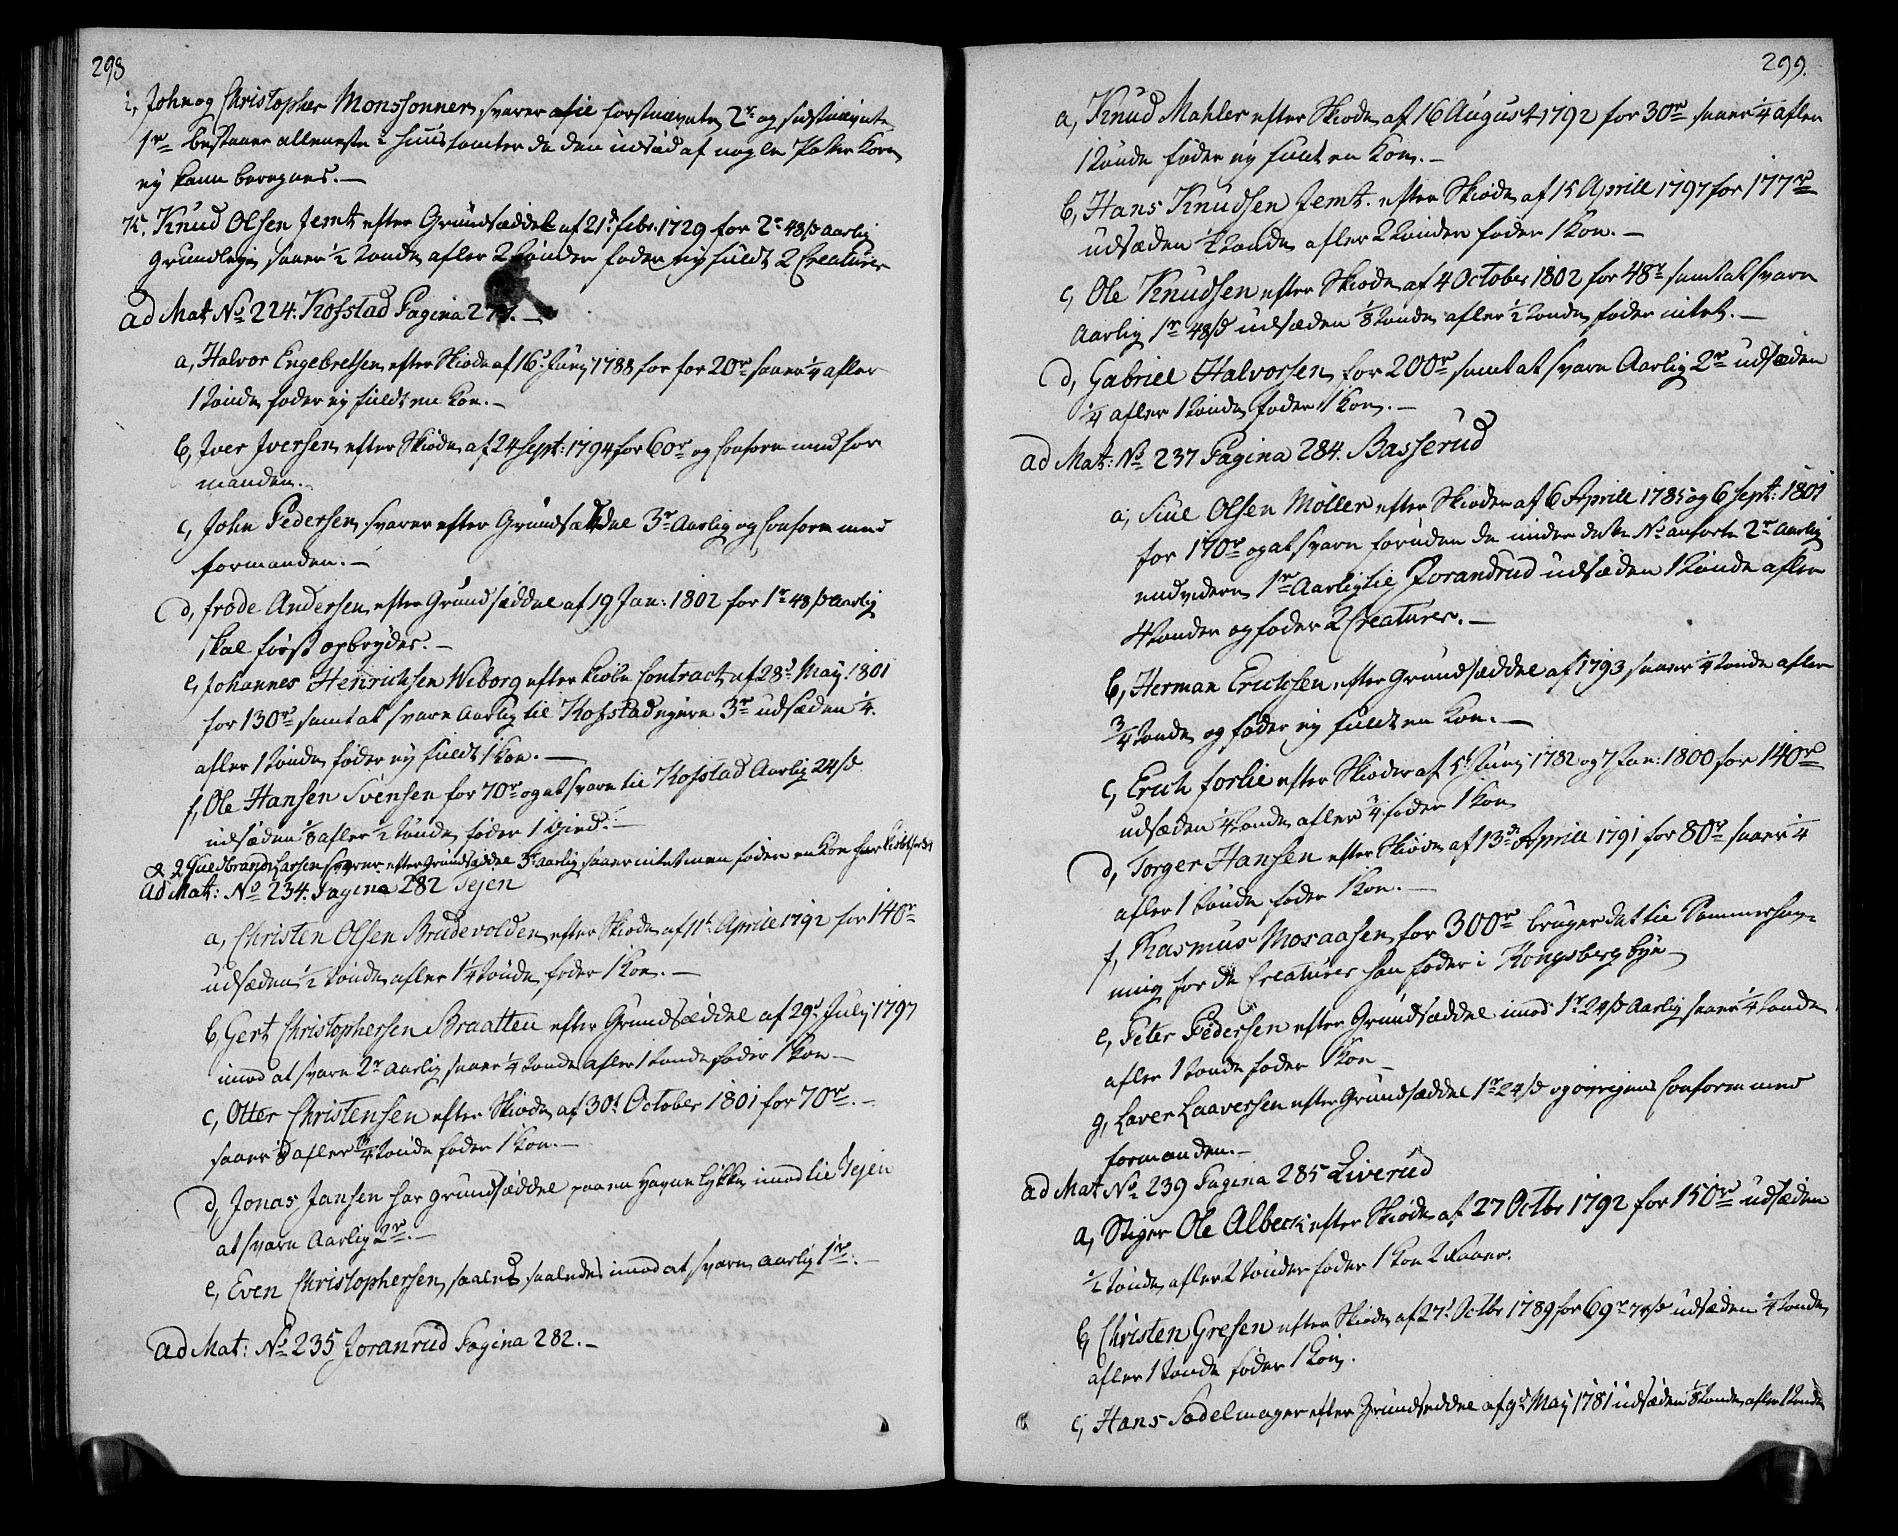 298
i, John og Christopher Monssønner, svarer til forstnævnte 2r og sidstnævnte
1r bestaaer alleneste i huustomter da den udsæd af nogle Potter Korn
ey kann beregnes.—
K. Knud Olsen Jemt efter Grundsæddel af 21d febr. 1729 for 2r 48 s aarlig
grundleje saaer ½ tønde afler 2 tønder føder ey fuldt 2 Creaturer
ad Mat No 224. Kofstad Pagina 277.—
a, Halvor Engebretsen, efter Skiøde af 16d Junij 1788 for for 20r saaer ¼ afler
1 tønde føder ey fuldt en Koe.—
b, Iver Iversen efter Skiøde af 24 Sept: 1794 for 60r og Conform med for
manden.—
c, John Pedersen, svarer efter Grundsæddel 3r Aarlig og Conform med
formanden.—
d, frode Andersen, efter Grundsæddel af 19 Jan: 1802 for 1r 48 s Aarlig
skal først opbrydes.—
e, Johannes Henrichsen Wiborg efter Kiøbe Contract af 28d May 1801
for 130r samt at svare Aarlig til Kofstad ejere 3r udsæden ¼.
afler 1 tønde føder ey fuldt 1 Koe.—
f, Ole Hansen Svensen for 70r og at svare til Kofstad Aarlig 24 s
udsæden ⅛ afler ½ tønde, føder 1 Gied.—
& g Guldbrand Larsen svarer efter Grundsæddel 3r aarlig saaer intet men føder en Koe
ad Mat: No 234. Pagina 282 Tejen
a, Christen Olsen Brudevolden, efter Skiøde af 11t Aprill 1792 for 140r
udsæden ½ tønde, afler 1¼ tønde føder 1 Koe.—
b, Gert Christophersen Braatten efter Grundsæddel af 29d Julij 1797
imod at svare 2r aarlig saaer ¼ tønde afler 1 tønde føder 1 Koe—
c, Otter Christensen efter Skiøde, af 30t October 1801 for 70r.—
saaer ⅛ afler ¾ tønde føder 1 Koe.—
d, Jonas Jansen har grundsæddel paa en Havne løkke, imod til Tejen
at svare Aarlig 2r.—
e, Even Christophersen, saaledes imod at svare, aarlig 1r.—
ad Mat: No 235 Joranrud Pagina 282.—
299.
a, Knud Mahler efter Skiøde, af 16 August 1792 for 30r saaer ¼ afler
1 tønde føder ey fuldt en Koe.—
b, Hans Knudsen Jemt. efter Skiøde af 15 Aprill 1797 for 177r
udsæden ½ tønde, afler 2 tønder føder 1 Koe.—
c, Ole Knudsen efter Skiøde af 4 October 1802 for 48r samt at svare
Aarlig 1r 48 s udsæden ⅛ tønde, afler ½ tønde, føder intet.—
d, Gabriel Halvorsen, for 200r samt at svare Aarlig 2r udsæden
¼ afler 1 tønde, føder 1 Koe.—
ad Mat: No 237 Pagina 284. Basserud
a, Siul Olsen Møller efter Skiøder af 6 Aprill 1785 og 6 Sept: 1801
for 170r og at svare foruden de under dette No anførte 2r Aarlig
endvidere 1r Aarlig til Jorandrud udsæden 1 tønde afler
4 tønder og føder 2 Creaturer.—
b, Herman Erichsen efter Grundsæddel af 1793 saaer ¼ tønde afler
¾ tønde, og føder ey fuldt en Koe.—
c, Erich forlie efter Skiøder af 5t Junij 1782 og 7 Jan: 1800 for 140r
udsæden ¼ tønde, afler ¾ føder 1 Koe
d, Torger Hansen efter Skiøde af 13d Aprill 1791 for 80r saaer ¼
afler 1 tønde føder 1 Koe.—
f, Rasmus Mosaasen, for 300r bruger det til Sommerhav-
ning for de Creaturer han føder i Kongsberg bye
e, Peter Pedersen efter Grundsæddel imod 1r 24 s Aarlig saaer ¼ tønde,
afler 1 tønde føder 1 Koe—
g, Laver Laaversen efter Grundsæddel 1r 24 s og øvrigens Conform med
formanden.—
ad Mat No 239 Pagina 285 Liverud
a, Stiger Ole Albeck efter Skiøde, af 27 Octbr 1792 for 150r udsæden
½ tønde, afler 2 tønder føder 1 Koe 2 Faaer.
b, Christen Gresen efter Skiøde, af 27d Octbr 1789 for 69r 74 s udsæden ¼ tønde,
afler 1 tønde føder 1 Koe.
c, Hans Sadelmager efter Grundseddel af 9d May 1781 udsæden ⅛ tønde, afler 1 tønde